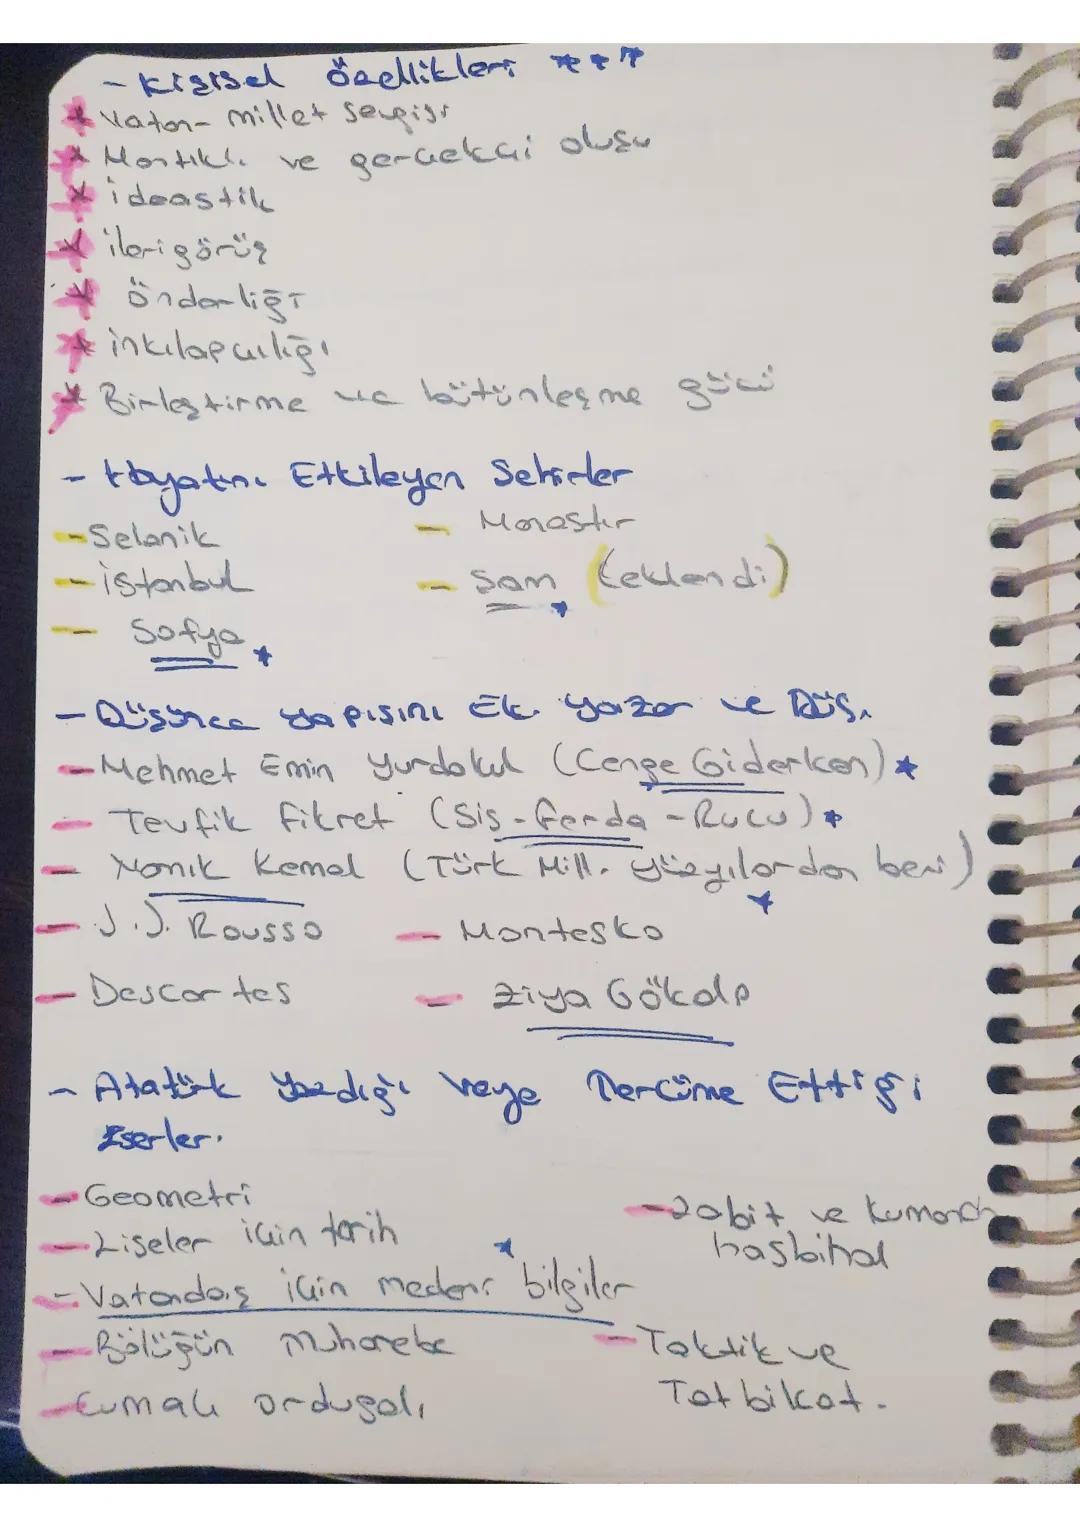 - Kişisel özellikleri ***
* Vatan - millet sevgisi
* Mantıklı ve gerçekçi oluşu
* ideastik
* ileri görüş
* önderliği
* inkılapçılığı
* Birleştirme ve bütünleşme gücü
- Hayatını Etkileyen Sehirler
- Selanik - Manastır
- istanbul - Sam (eklendi)
- Sofya
- Düşünce yapısını Etk. yazar ve Düş.
- Mehmet Emin Yurdakul (Cenge Giderken)
- Tevfik Fikret (Sis - Ferda - Rucu)
- Namık Kemal (Türk Mill. yüzyılardan beri)
- J.J. Rousso - Montesko
- Descartes - Ziya Gökalp
- Atatürk Yazdığı veya Tercüme Ettiği
Eserler.
- Geometri
- Liseler için tarih
- Zabit ve kumandan
hasbihal
- Vatandaş için medeni bilgiler
- Bölüğün Muharebe
- Taktik ve
Tatbikat.
- Cumalı ordugahı